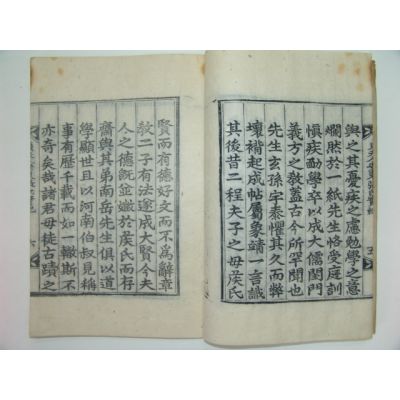 與之其憂疾之慮勉學之意
爛然於一紙先生恪受庭訓
愼疾勤學卒以成大儒閨門
義方之敎蓋古今所罕聞也
先生玄孫宇泰懼其久而弊
壞褙起成帖屬象靖一言識
其後昔二程夫子之母矦氏
賢而有德好文而不爲辭章
敎二子有法遂成大賢今夫
人之德旣並媺於矦氏而存
齋與其弟南岳先生俱以道
學顯世且以河南伯叔見稱
事有歷千載而如一轍斯不
亦奇矣哉諸君毋徒古蹟之
六